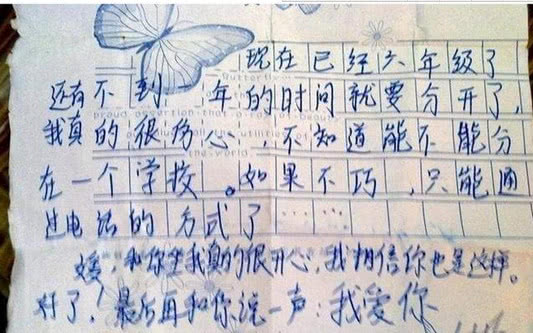 现在已经六年级了
还有不到 年的时间就要分开了,
我真的很伤心,不知道能不能分
在一个学校。如果不巧,只能通
过电话的方式了……
媛,和你坐我真的很开心,我相信你也是这样。
好了!最后再和你说一声:我爱你